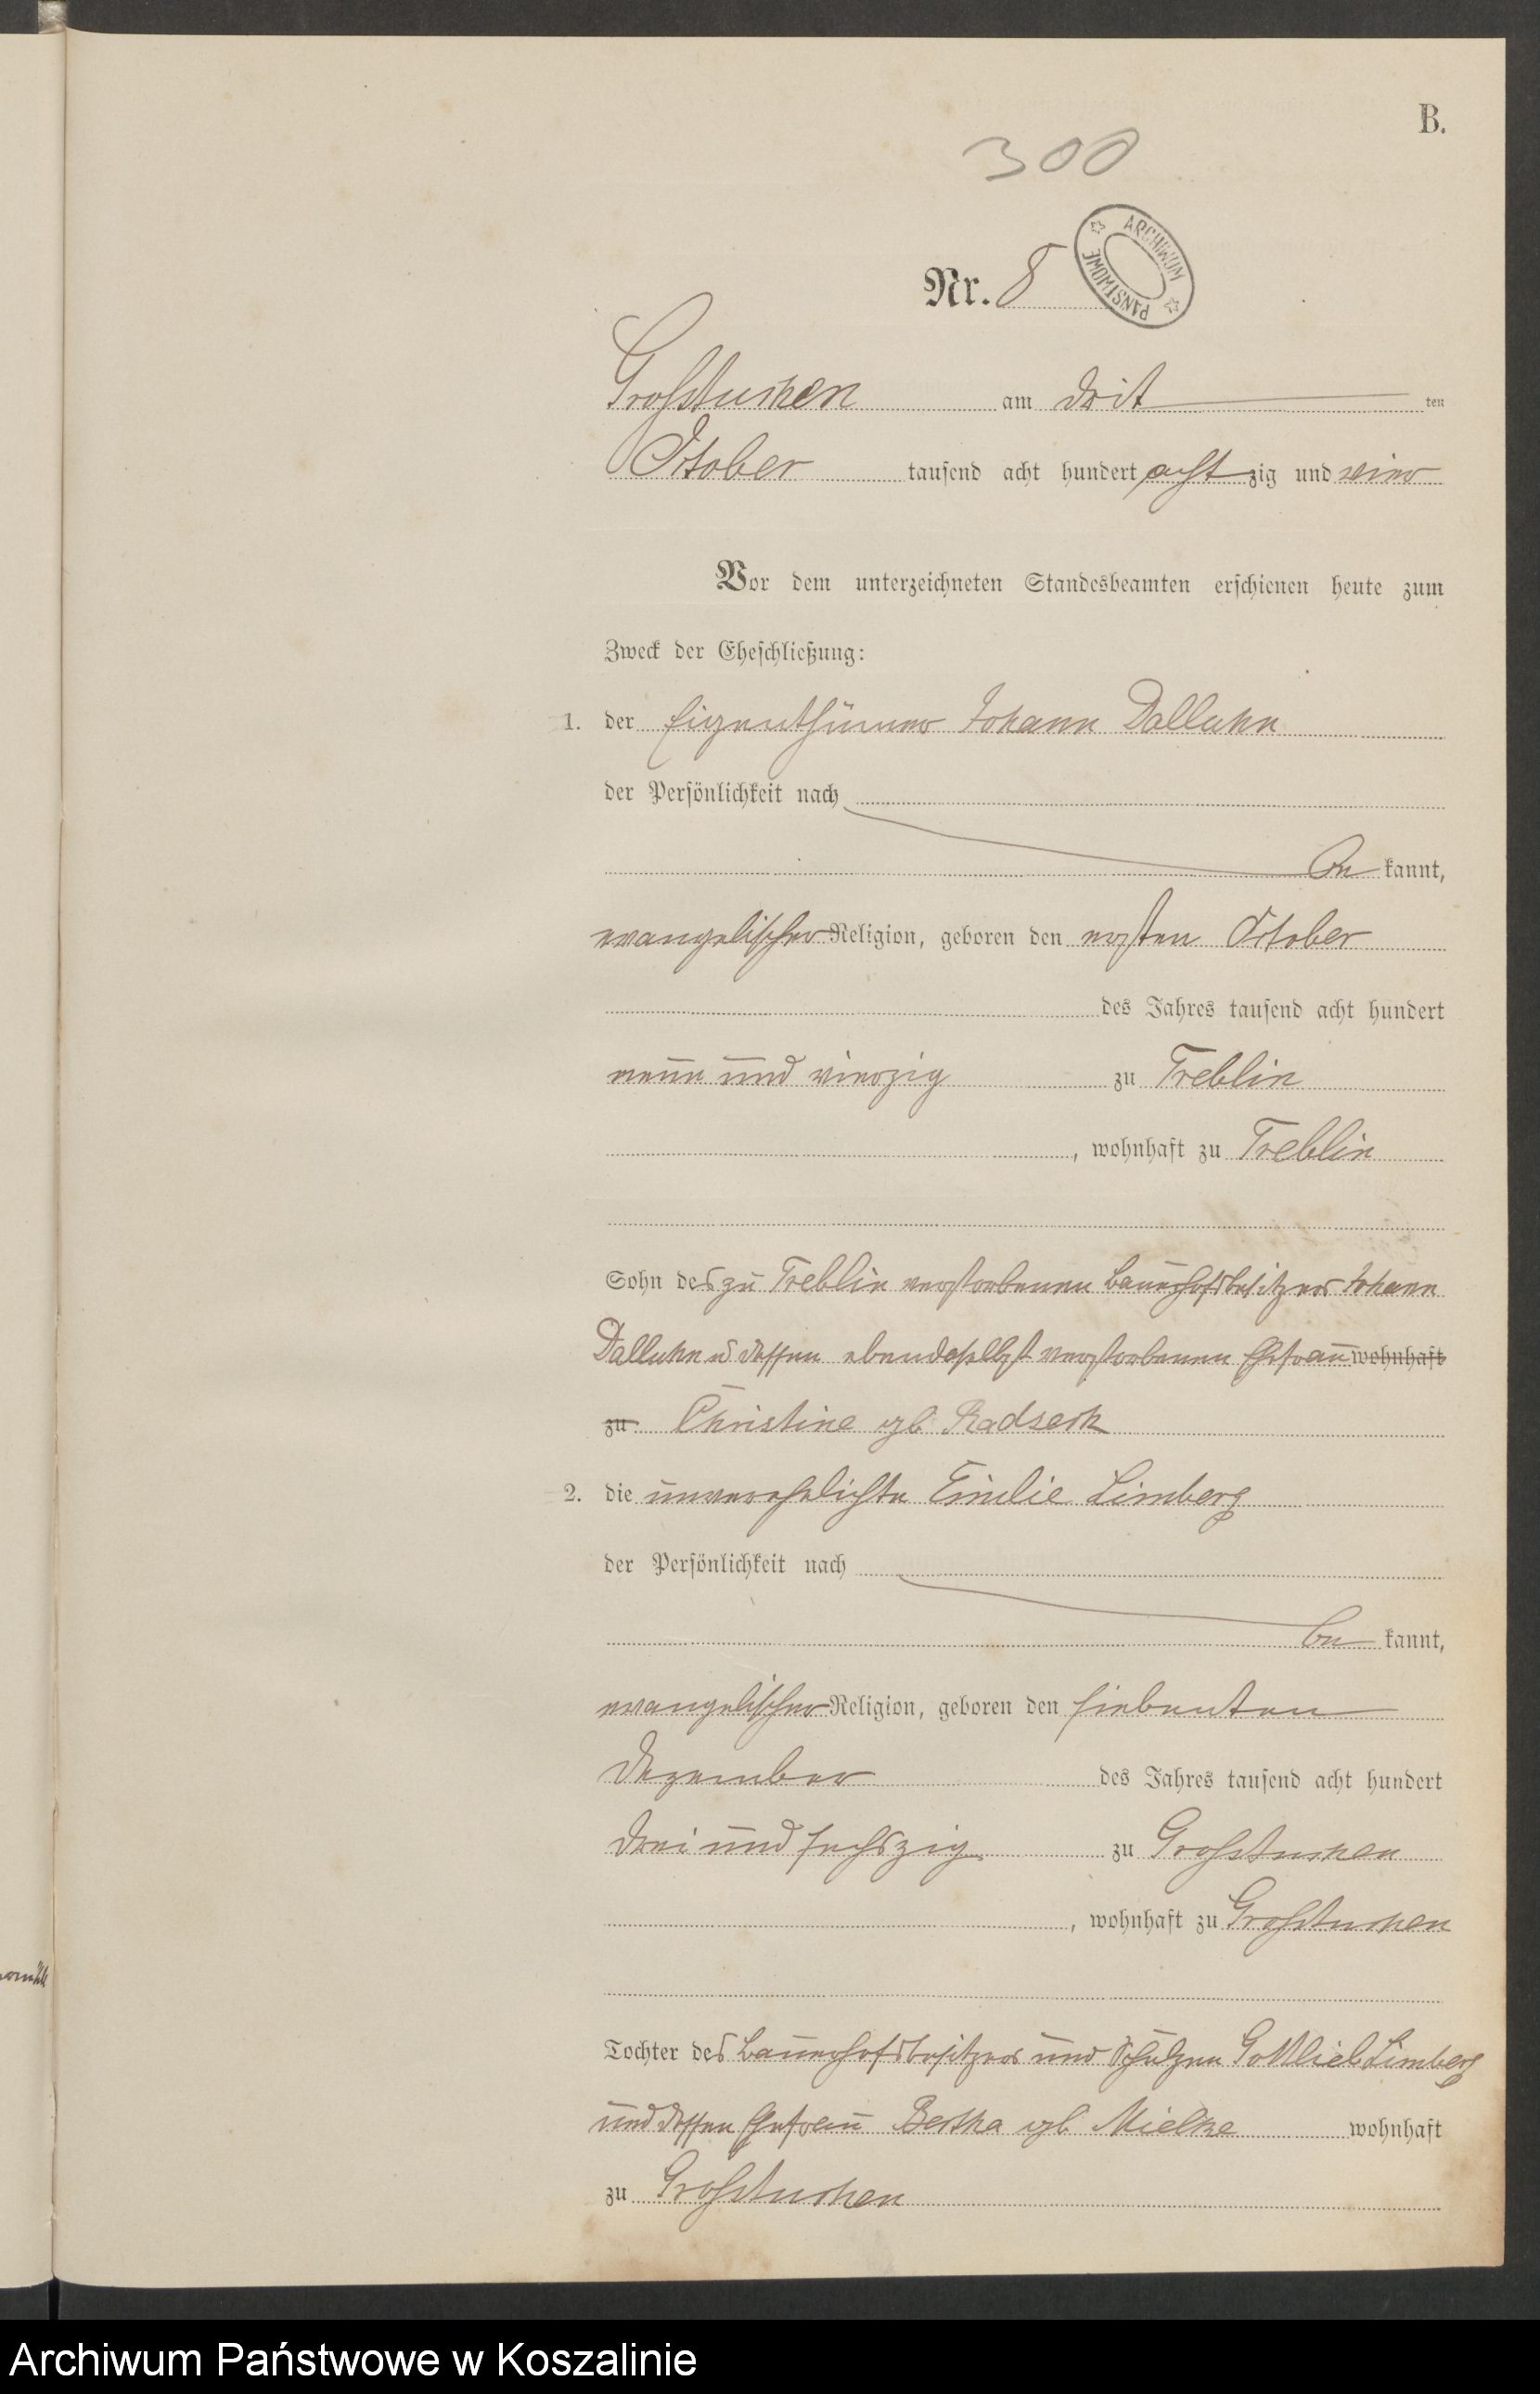 B.
300
Nr. 8
ARCHIWUM PAŃSTWOWE
Grosstuchen am drit ten
October tausend acht hundert acht zig und vier
Vor dem unterzeichneten Standesbeamten erschienen heute zum
Zweck der Eheschließung:
1. der Eigenthümer Johann Dalluhn
der Persönlichkeit nach
be kannt,
evangelischer Religion, geboren den ersten October
des Jahres tausend acht hundert
neun und vierzig zu Treblin
, wohnhaft zu Treblin
Sohn des zu Treblin verstorbenen Bauerhofsbesitzers Johann
Dalluhn u dessen ebendaselbst verstorbenen Ehefrau wohnhaft
zu Christine geb
2. die unverehelichte Emilie Limberg
der Persönlichkeit nach
be kannt,
evangelischer Religion, geboren den siebenten
Dezember des Jahres tausend acht hundert
drei und sechszig zu Grosstuchen
, wohnhaft zu Grosstuchen
Tochter des Bauerhofsbesitzers und Schulzen Gottlieb Limberg
und dessen Ehefrau Bertha geb Mielke wohnhaft
zu Grosstuchen
Archiwum Państwowe w Koszalinie